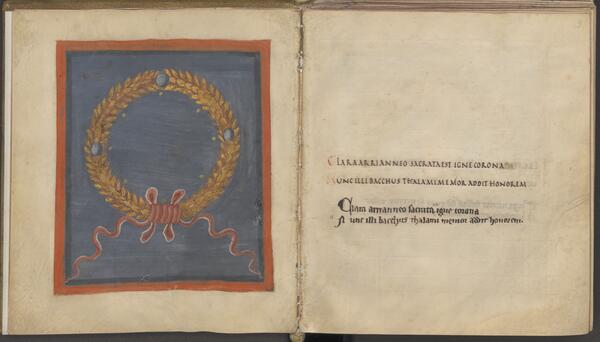 CLARA ARRIANNEO SACRATA EST IGNE CORONA
NUNC ILLI BACCHUS THALAMI MEMOR ADDIT HONOREM
Clara arrianneo sacrata igne corona
Nunc illi bacchus thalami memor addit honorem.